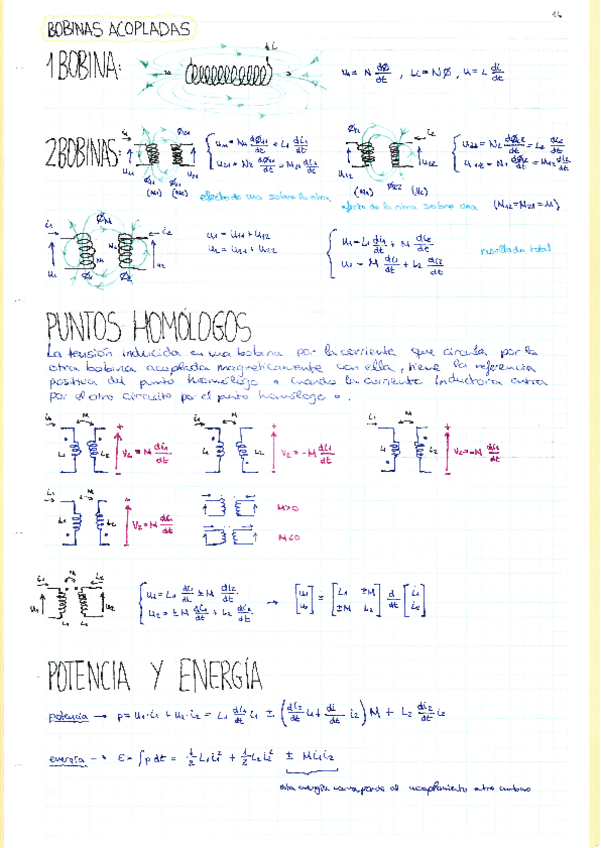 14
BOBINAS ACOPLADAS
1 BOBINA:
i
u = N dØ/dt , Li = NØ , u = L di/dt
2 BOBINAS:
i1 Ø21
u11 u21
Ø11
(N1) (N2)
u11 = N1 dØ11/dt = L1 di1/dt
u21 = N2 dØ21/dt = M21 di1/dt
efecto de una sobre la otra
Ø12 i2
u12 u22
(N1) Ø22 (N2)
u22 = N2 dØ22/dt = L2 di2/dt
u12 = N1 dØ12/dt = M12 di2/dt
efecto de la otra sobre una (M12 = M21 = M)
i1 ØM i2
u1 N1 N2 u2
Ø1 Ø2
u1 = u11 + u12
u2 = u21 + u22
u1 = L1 di1/dt + M di2/dt
u2 = M di1/dt + L2 di2/dt
resultado total
PUNTOS HOMÓLOGOS
La tensión inducida en una bobina por la corriente que circula por la
otra bobina acoplada magneticamente con ella, tiene la referencia
positiva del punto homólogo • cuando la corriente inductora entra
por el otro circuito por el punto homólogo •.
i1 M L1 L2 + V2 = M di1/dt -
i1 M L1 L2 + V2 = -M di1/dt -
i1 M L1 L2 + V2 = -M di1/dt -
i1 M L1 L2 + V2 = M di1/dt -
M>0
M<0
i1 M i2
u1 L1 L2 u2
u1 = L1 di1/dt ± M di2/dt
u2 = ± M di1/dt + L2 di2/dt
→ [u1 u2] = [L1 ±M ±M L2] d/dt [i1 i2]
POTENCIA Y ENERGÍA
potencia → p = u1·i1 + u2·i2 = L1 di1/dt i1 ± (di2/dt i1 + di/dt i2) M + L2 di2/dt i2
energía → E = ∫p dt = 1/2 L1 i1² + 1/2 L2 i2² ± M i1 i2
esta energía corresponde al acoplamiento entre ambas